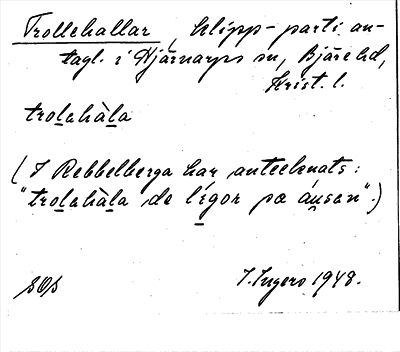 Trollehallar, klipp-parti an-
tagl. i Hjärnarps sn, Bjäre hd,
Krist. l.
trolahàla
(I Rebbelberga har antecknats:
"trolahàla de lígor pœ áusen".)
SOs I. Ingers 1948.